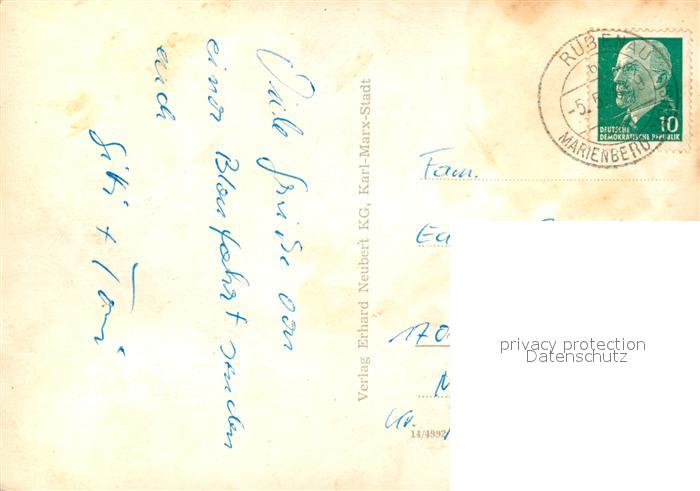 Viele Grüße von
einer Blaufahrt senden
euch
Gitti + Toni
Verlag Erhard Neubert KG, Karl-Marx-Stadt
RÜBENAU
-5.
MARIENBERG
DEUTSCHE
DEMOKRATISCHE REPUBLIK
10
Fam.
170
Kr.
14/4992
privacy protection
Datenschutz